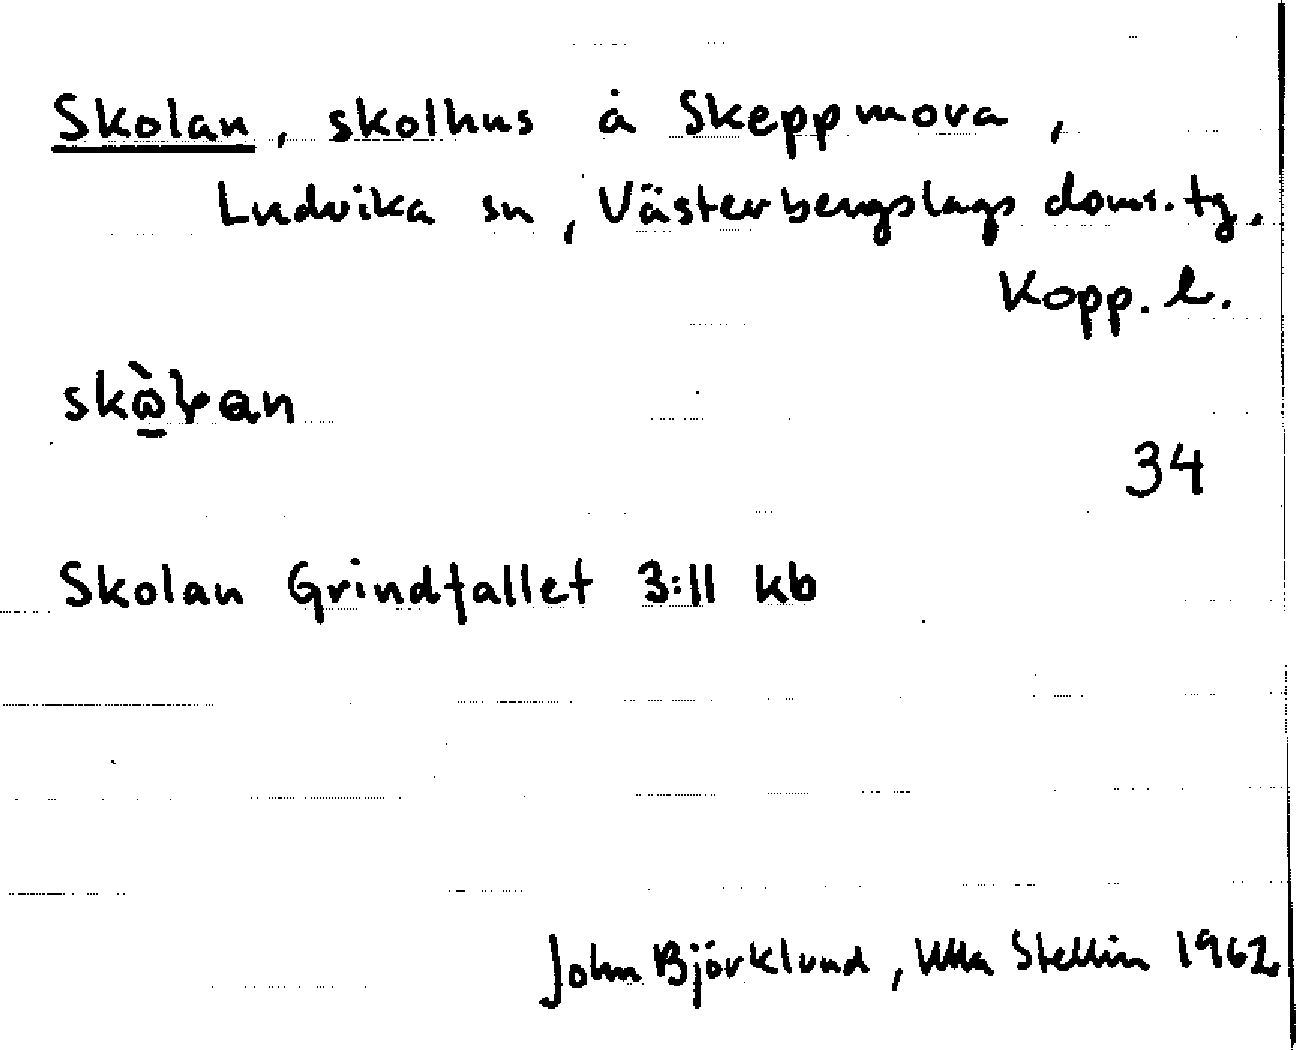 Skolan, skolhus å Skeppmora,
Ludvika sn, Västerbergslags doms.tg.
Kopp. l.
34
Skolan Grindfallet 3:11 kb
John Björklund, Ulla Stellin 1962